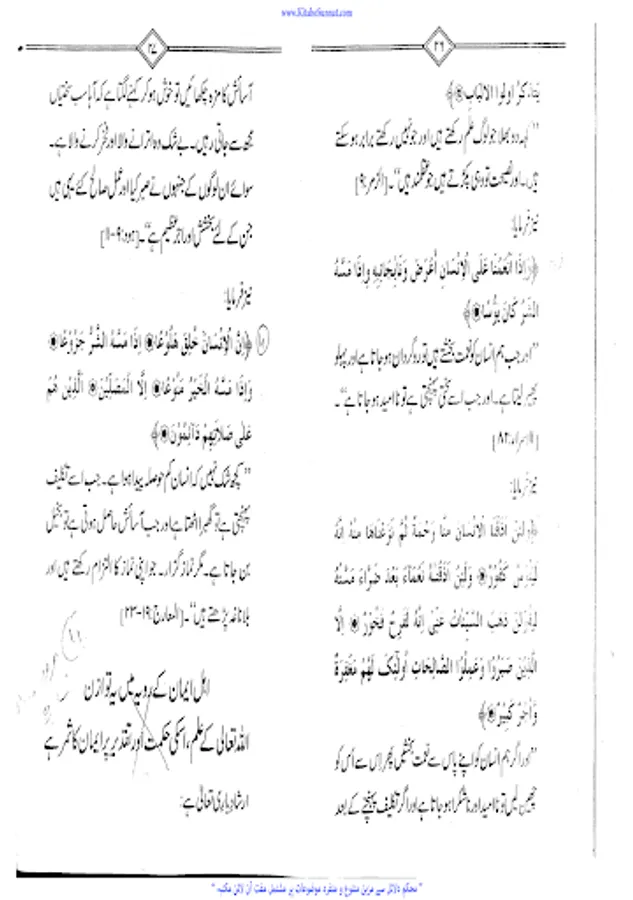 www.KitaboSunnat.com
۲۶
يَتَذَكَّرُ اُولُوا الْاَلْبَابِ﴾
’’کہہ دو بھلا جو لوگ علم رکھتے ہیں اور جو نہیں رکھتے برابر ہو سکتے
ہیں۔ اور نصیحت تو وہی پکڑتے ہیں جو عقلمند ہیں‘‘۔ [الزمر:۹]
نیز فرمایا:
﴿وَاِذَا اَنْعَمْنَا عَلَى الْاِنْسَانِ اَعْرَضَ وَنَاٰ بِجَانِبِهٖ وَاِذَا مَسَّهُ
الشَّرُّ كَانَ يَئُوْسًا﴾
’’اور جب ہم انسان کو نعمت بخشتے ہیں تو روگردان ہو جاتا ہے اور پہلو
پھیر لیتا ہے۔ اور جب اسے سختی پہنچتی ہے تو ناامید ہو جاتا ہے‘‘۔
[الاسراء:۸۳]
نیز فرمایا:
﴿وَلَئِنْ اَذَقْنَا الْاِنْسَانَ مِنَّا رَحْمَةً ثُمَّ نَزَعْنَاهَا مِنْهُ اِنَّهُ
لَيَئُوْسٌ كَفُوْرٌ وَلَئِنْ اَذَقْنٰهُ نَعْمَآءَ بَعْدَ ضَرَّآءَ مَسَّتْهُ
لَيَقُوْلَنَّ ذَهَبَ السَّيِّئَاتُ عَنِّيْ اِنَّهُ لَفَرِحٌ فَخُوْرٌ اِلَّا
الَّذِيْنَ صَبَرُوْا وَعَمِلُوا الصَّالِحَاتِ اُولٰٓئِكَ لَهُمْ مَغْفِرَةٌ
وَّاَجْرٌ كَبِيْرٌ﴾
’’اور اگر ہم انسان کو اپنے پاس سے نعمت بخشیں پھر اس سے اُس کو
چھین لیں تو ناامید اور ناشکرا ہو جاتا ہے اور اگر تکلیف پہنچنے کے بعد
۲۷
آسائش کا مزہ چکھائیں تو خوش ہو کر کہنے لگتا ہے کہ آہا سب سختیاں
مجھ سے جاتی رہیں۔ بے شک وہ اترانے والا اور فخر کرنے والا ہے۔
سوائے ان لوگوں کے جنہوں نے صبر کیا اور عمل صالح کئے یہی ہیں
جن کے لئے بخشش اور اجر عظیم ہے‘‘۔ [ہود:۹-۱۱]
نیز فرمایا:
﴿اِنَّ الْاِنْسَانَ خُلِقَ هَلُوْعًا اِذَا مَسَّهُ الشَّرُّ جَزُوْعًا
وَاِذَا مَسَّهُ الْخَيْرُ مَنُوْعًا اِلَّا الْمُصَلِّيْنَ الَّذِيْنَ هُمْ
عَلٰى صَلَاتِهِمْ دَآئِمُوْنَ﴾
’’کچھ شک نہیں کہ انسان کم حوصلہ پیدا ہوا ہے۔ جب اسے تکلیف
پہنچتی ہے تو گھبرا اٹھتا ہے اور جب آسائش حاصل ہوتی ہے تو بخیل
بن جاتا ہے۔ مگر نماز گزار۔ جو اپنی نماز کا التزام رکھتے ہیں اور
بلاناغہ پڑھتے ہیں‘‘۔ [المعارج:۱۹-۲۳]
اہل ایمان کے رویہ میں یہ توازن
اللہ تعالی کے علم، اسکی حکمت اور تقدیر پر ایمان کا ثمر ہے
ارشاد باری تعالی ہے:
" محکم دلائل سے مزین متنوع و منفرد موضوعات پر مشتمل مفت آن لائن مکتبہ "